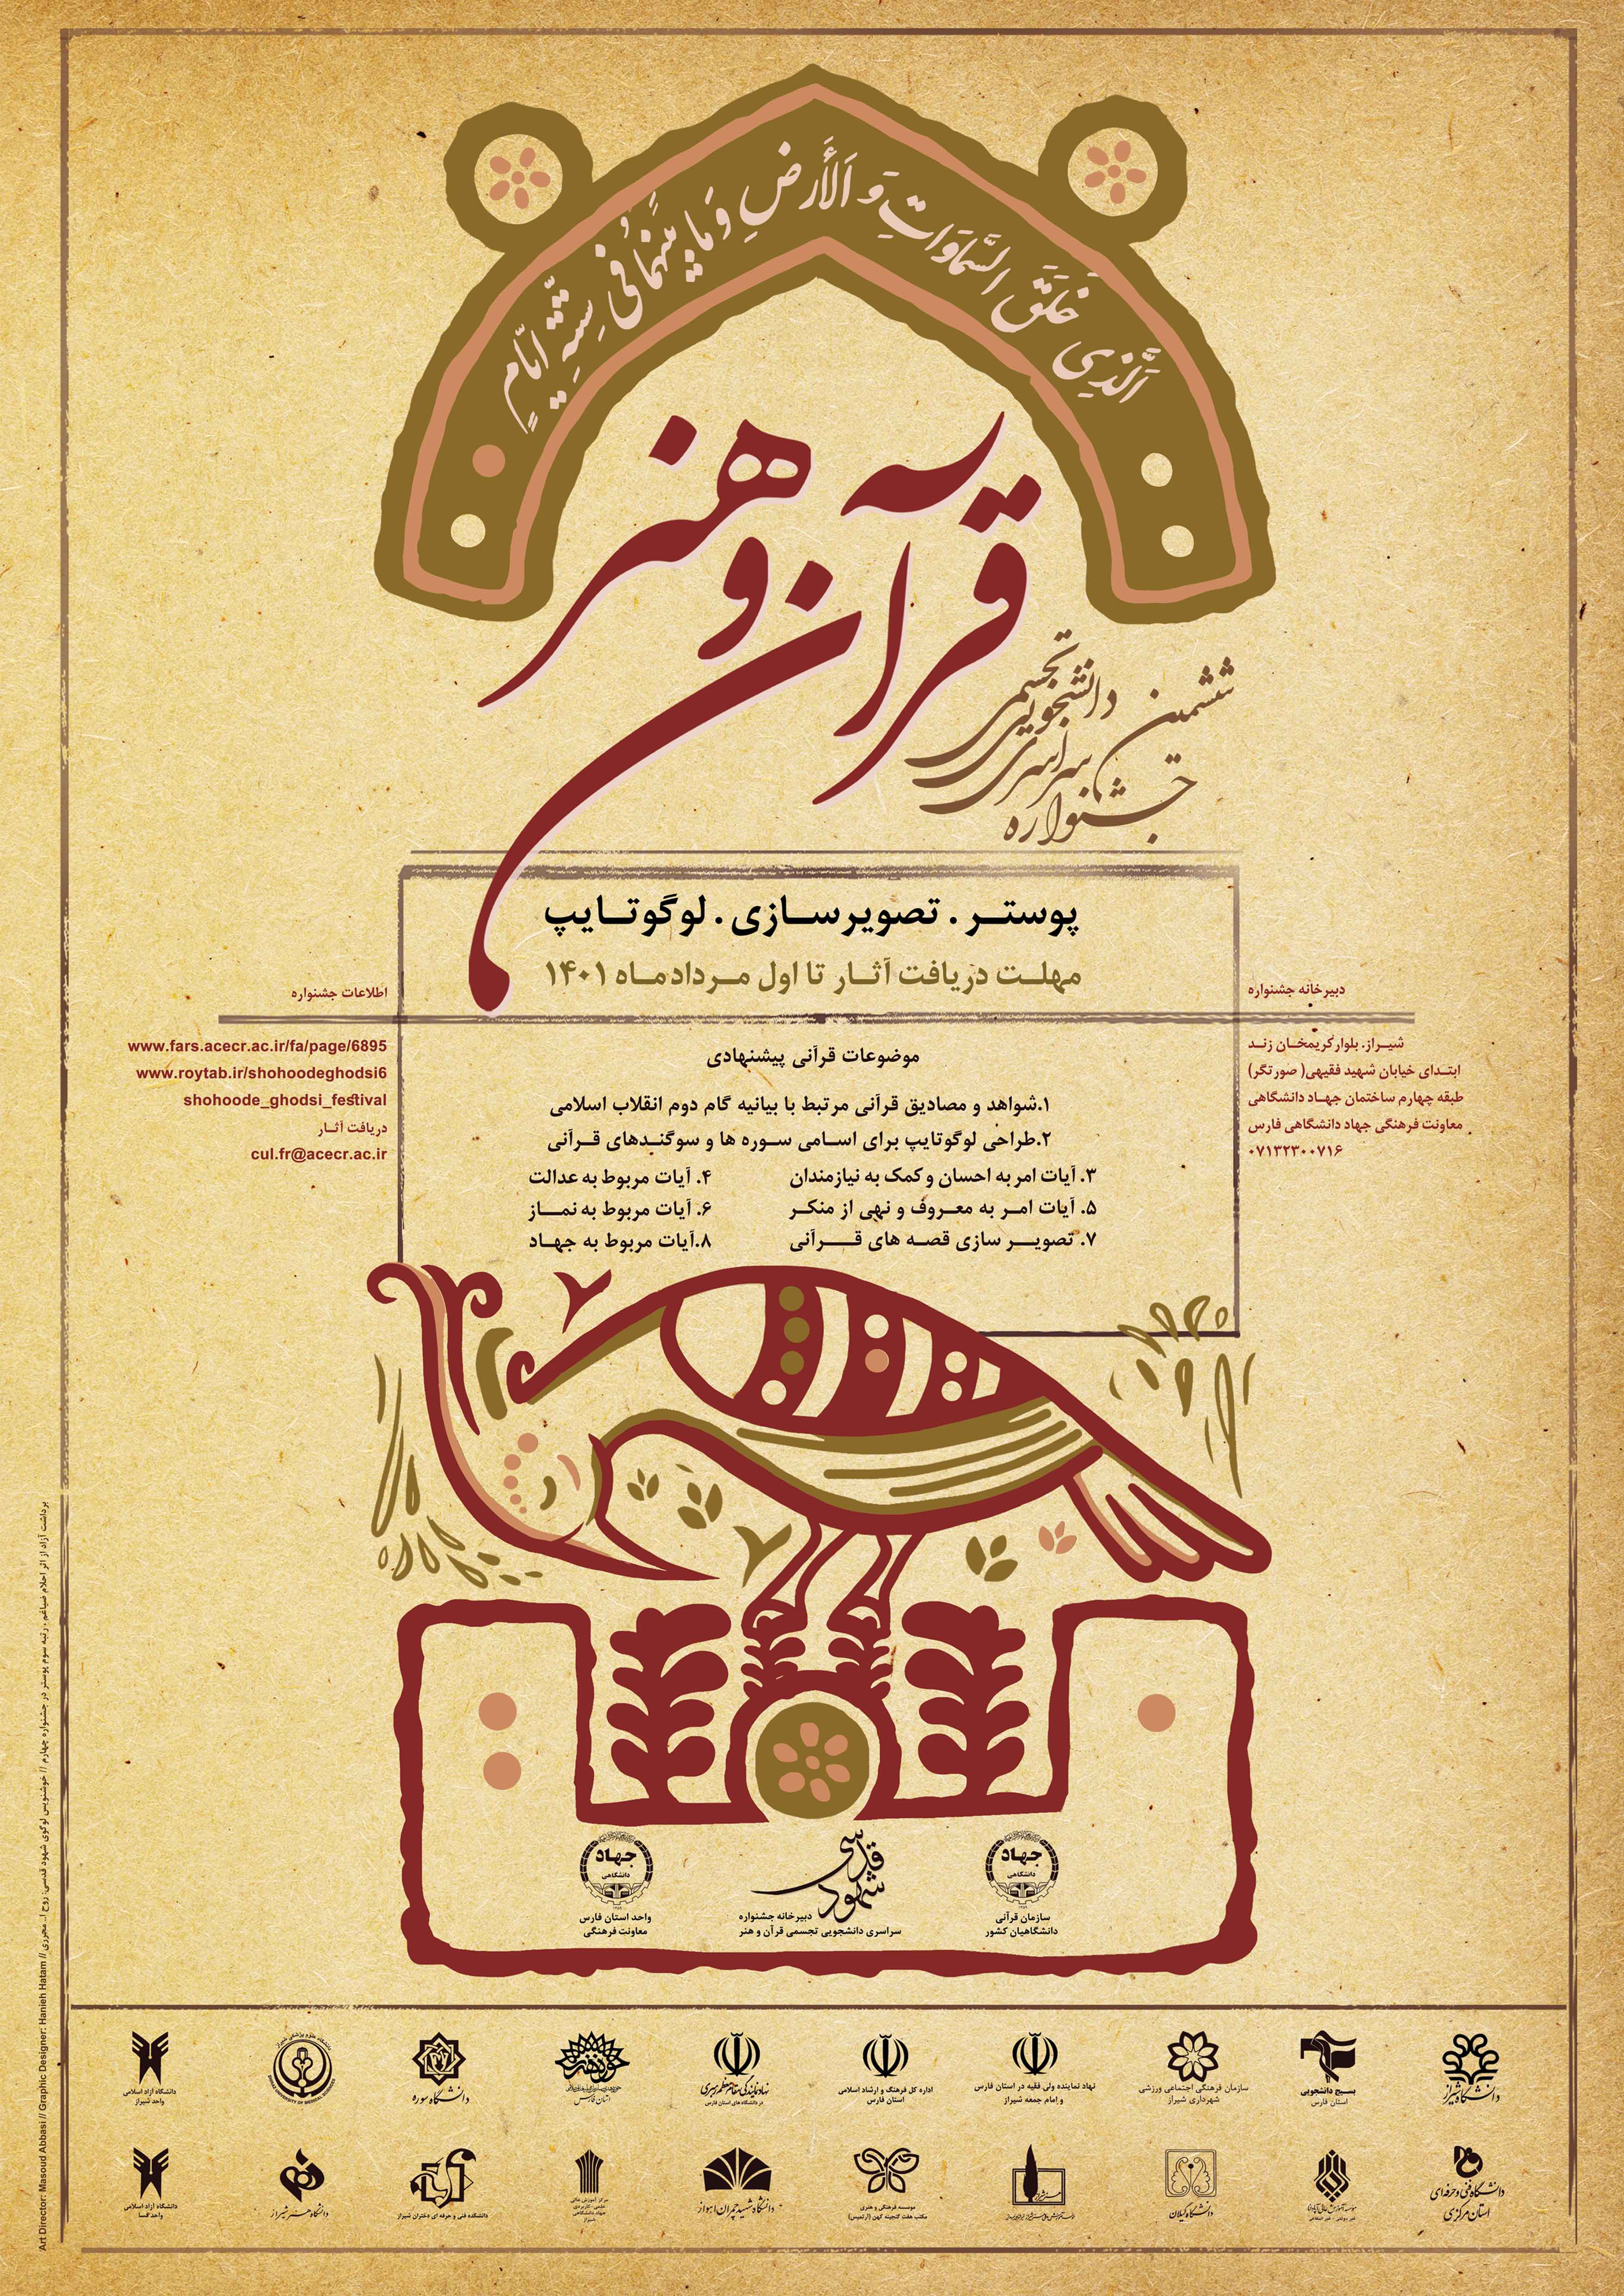 الَّذِی خَلَقَ السَّمَاوَاتِ وَ الْأَرْضَ وَ مَا بَیْنَهُمَا فِی سِتَّةِ أَیَّامٍ
قرآن و هنر
ششمین
جشنواره
سراسری
دانشجویی
تجسمی
پوستر . تصویرسازی . لوگوتایپ
مهلت دریافت آثار تا اول مردادماه ۱۴۰۱
دبیرخانه جشنواره
شیراز. بلوارکریمخان زند
ابتدای خیابان شهید فقیهی( صورتگر)
طبقه چهارم ساختمان جهاد دانشگاهی
معاونت فرهنگی جهاد دانشگاهی فارس
۰۷۱۳۲۳۰۰۷۱۶
اطلاعات جشنواره
www.fars.acecr.ac.ir/fa/page/6895
www.roytab.ir/shohoodeghodsi6
shohoode_ghodsi_festival
دریافت آثار
cul.fr@acecr.ac.ir
موضوعات قرآنی پیشنهادی
۱.شواهد و مصادیق قرآنی مرتبط با بیانیه گام دوم انقلاب اسلامی
۲.طراحی لوگوتایپ برای اسامی سوره ها و سوگندهای قرآنی
۳. آیات امر به احسان و کمک به نیازمندان
۴. آیات مربوط به عدالت
۵. آیات امر به معروف و نهی از منکر
۶. آیات مربوط به نماز
۷. تصویر سازی قصه های قرآنی
۸.آیات مربوط به جهاد
جهاد
دانشگاهی
سازمان قرآنی
دانشگاهیان کشور
شهود قدسی
دبیرخانه جشنواره
سراسری دانشجویی تجسمی قرآن و هنر
جهاد
دانشگاهی
واحد استان فارس
معاونت فرهنگی
دانشگاه شیراز
بسیج دانشجویی
استان فارس
سازمان فرهنگی اجتماعی ورزشی
شهرداری شیراز
نهاد نماینده ولی فقیه در استان فارس
و امام جمعه شیراز
اداره کل فرهنگ و ارشاد اسلامی
استان فارس
نهاد نمایندگی مقام معظم رهبری
در دانشگاه های استان فارس
حوزه هنری
استان فارس
دانشگاه سوره
دانشگاه آزاد اسلامی
واحد شیراز
دانشگاه فنی و حرفه‌ای
استان مرکزی
دانشگاه گیلان
موسسه فرهنگی و هنری
مکتب هفت گنجینه کهن (آرتمیس)
دانشگاه شهید چمران اهواز
مرکز آموزش عالی
علمی - کاربردی
جهاد دانشگاهی
شیراز
دانشکده فنی و حرفه ای دختران شیراز
دانشگاه هنر شیراز
دانشگاه آزاد اسلامی
واحد فسا
Art Director: Masoud Abbasi // Graphic Designer: Hanieh Hatam //